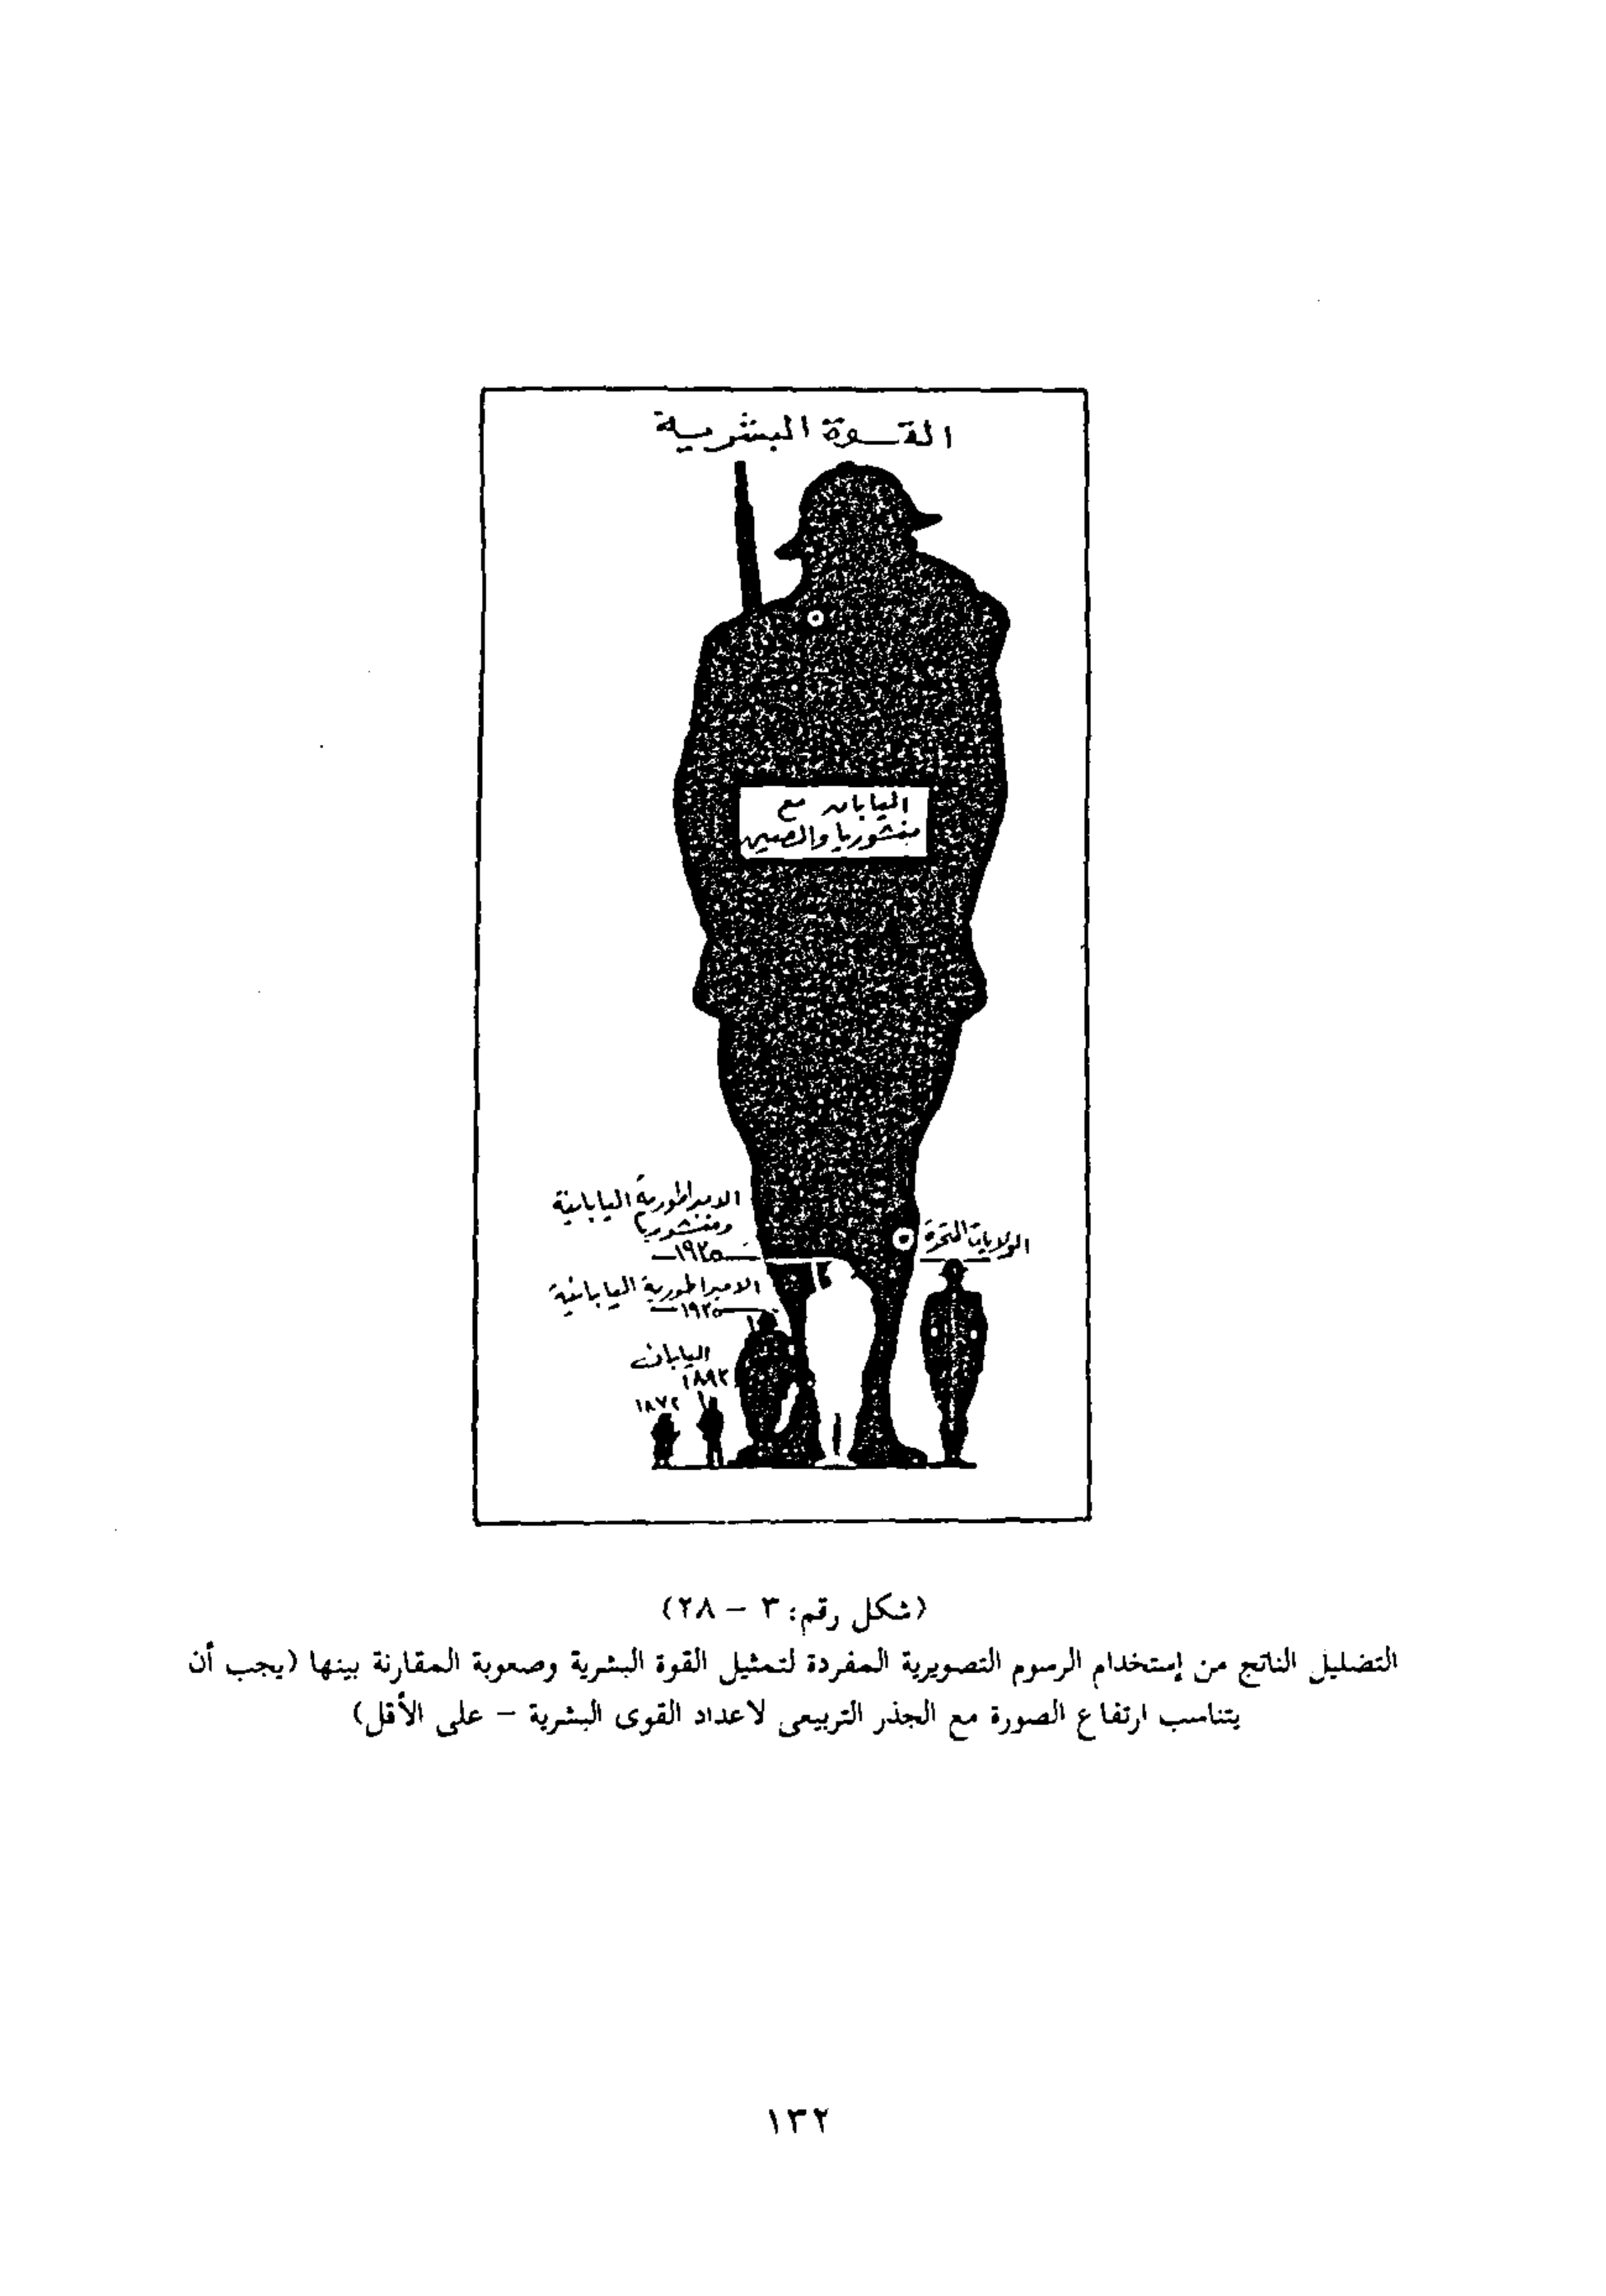 القـوة البشرية
اليابان مع
منشوريا والصين
الامبراطورية اليابانية
ومنشوريا
١٩٢٥
الولايات المتحدة
الامبراطورية اليابانية
١٩٢٥
اليابان
١٨٩٢
١٨٧٢
(شكل رقم: ٣ - ٢٨)
التضليل الناتج من إستخدام الرسوم التصويرية المفردة لتمثيل القوة البشرية وصعوبة المقارنة بينها (يجب أن
يتناسب ارتفاع الصورة مع الجذر التربيعى لاعداد القوى البشرية - على الأقل)
١٣٢